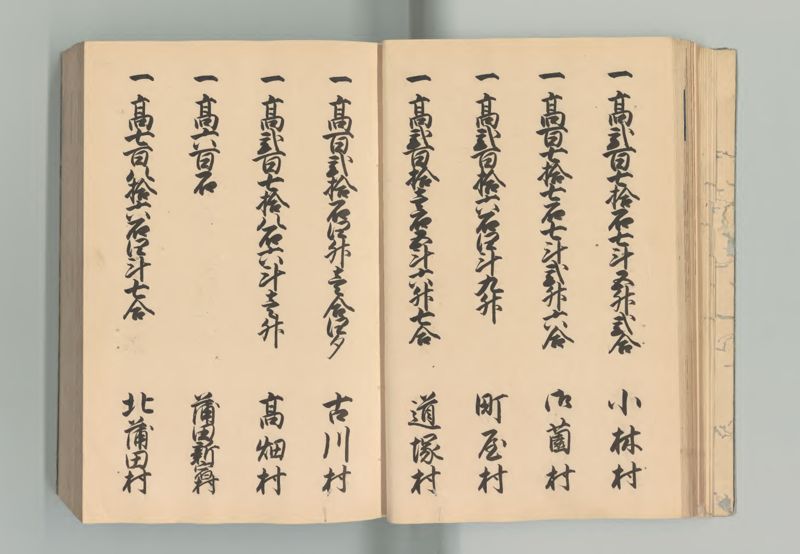 一 高弐百七拾石七斗五升弐合 小林村
一 高百七拾七石七斗弐升六合 御薗村
一 高弐百拾六石四斗九升 町屋村
一 高弐百拾三石五斗六升七合 道塚村
一 高百弐拾石四升壱合四夕 古川村
一 高弐百七拾八石六斗壱升 高畑村
一 高六百石 蒲田新宿村
一 高七百八拾六石四斗七合 北蒲田村